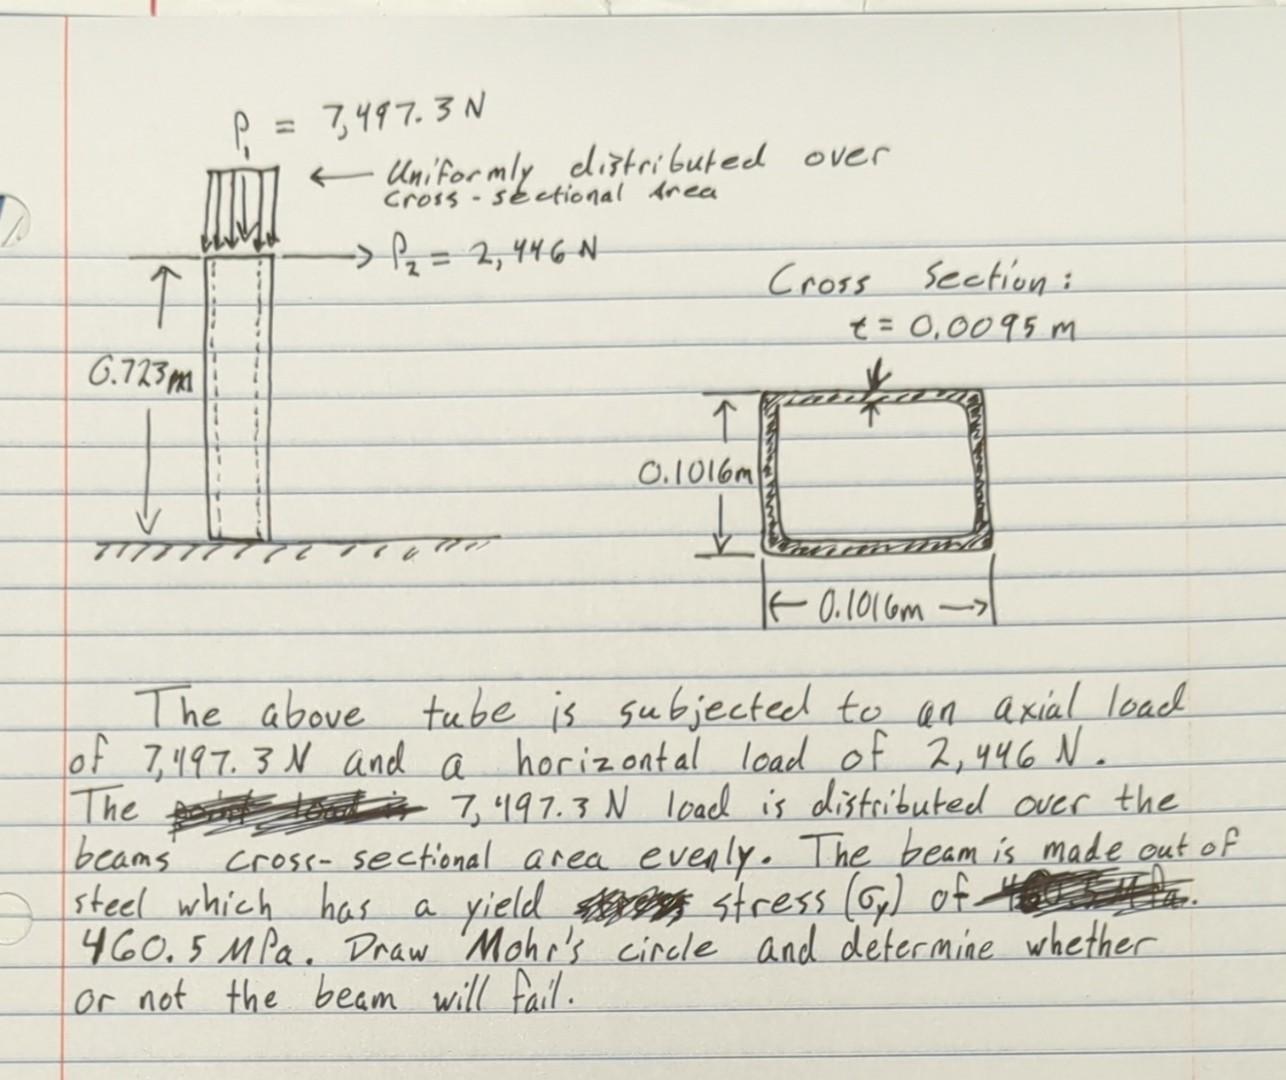 P₁ = 7,497.3 N
← Uniformly distributed over
cross-sectional Area
P₂ = 2,446 N
Cross Section:
t = 0.0095 m
0.723m
0.1016m
0.1016m
The above tube is subjected to an axial load
of 7,497.3 N and a horizontal load of 2,446 N.
The 7,497.3 N load is distributed over the
beams cross-sectional area evenly. The beam is made out of
steel which has a yield stress (σy) of
460.5 MPa. Draw Mohr's circle and determine whether
or not the beam will fail.